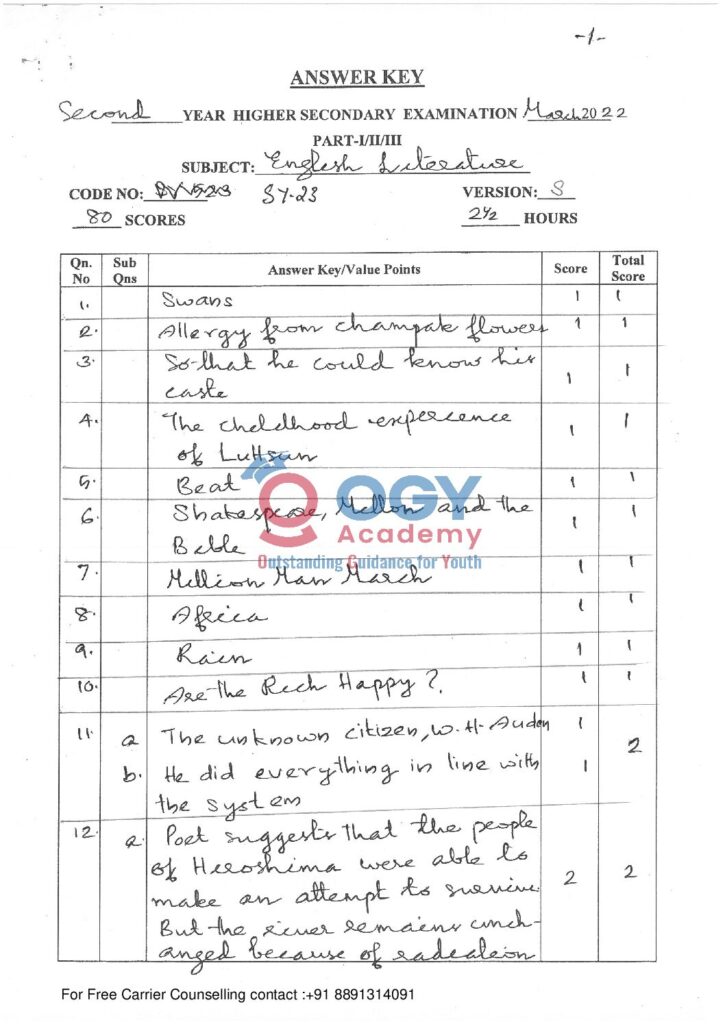 -1-
ANSWER KEY
Second YEAR HIGHER SECONDARY EXAMINATION March 2022
PART-I/II/III
SUBJECT: English Literature
CODE NO: SY-23 VERSION: S
80 SCORES 2½ HOURS
Qn. No Sub Qns Answer Key/Value Points Score Total Score
1. Swans 1 1
2. Allergy from champak flowers 1 1
3. So that he could know his
caste 1 1
4. The childhood experience
of Luttsun 1 1
5. Beat 1 1
6. Shakespeare, Mellon and the
Bible 1 1
7. Million Man March 1 1
8. Africa 1 1
9. Rain 1 1
10. Are the Rich Happy? 1 1
11. a The unknown citizen, W. H. Auden 1
2
b. He did everything in line with
the system 1
12. a. Poet suggests that the people
of Hiroshima were able to
make an attempt to survive. 2 2
But the river remains unch-
anged because of radeation
OGY
Academy
Outstanding Guidance for Youth
For Free Carrier Counselling contact :+91 8891314091